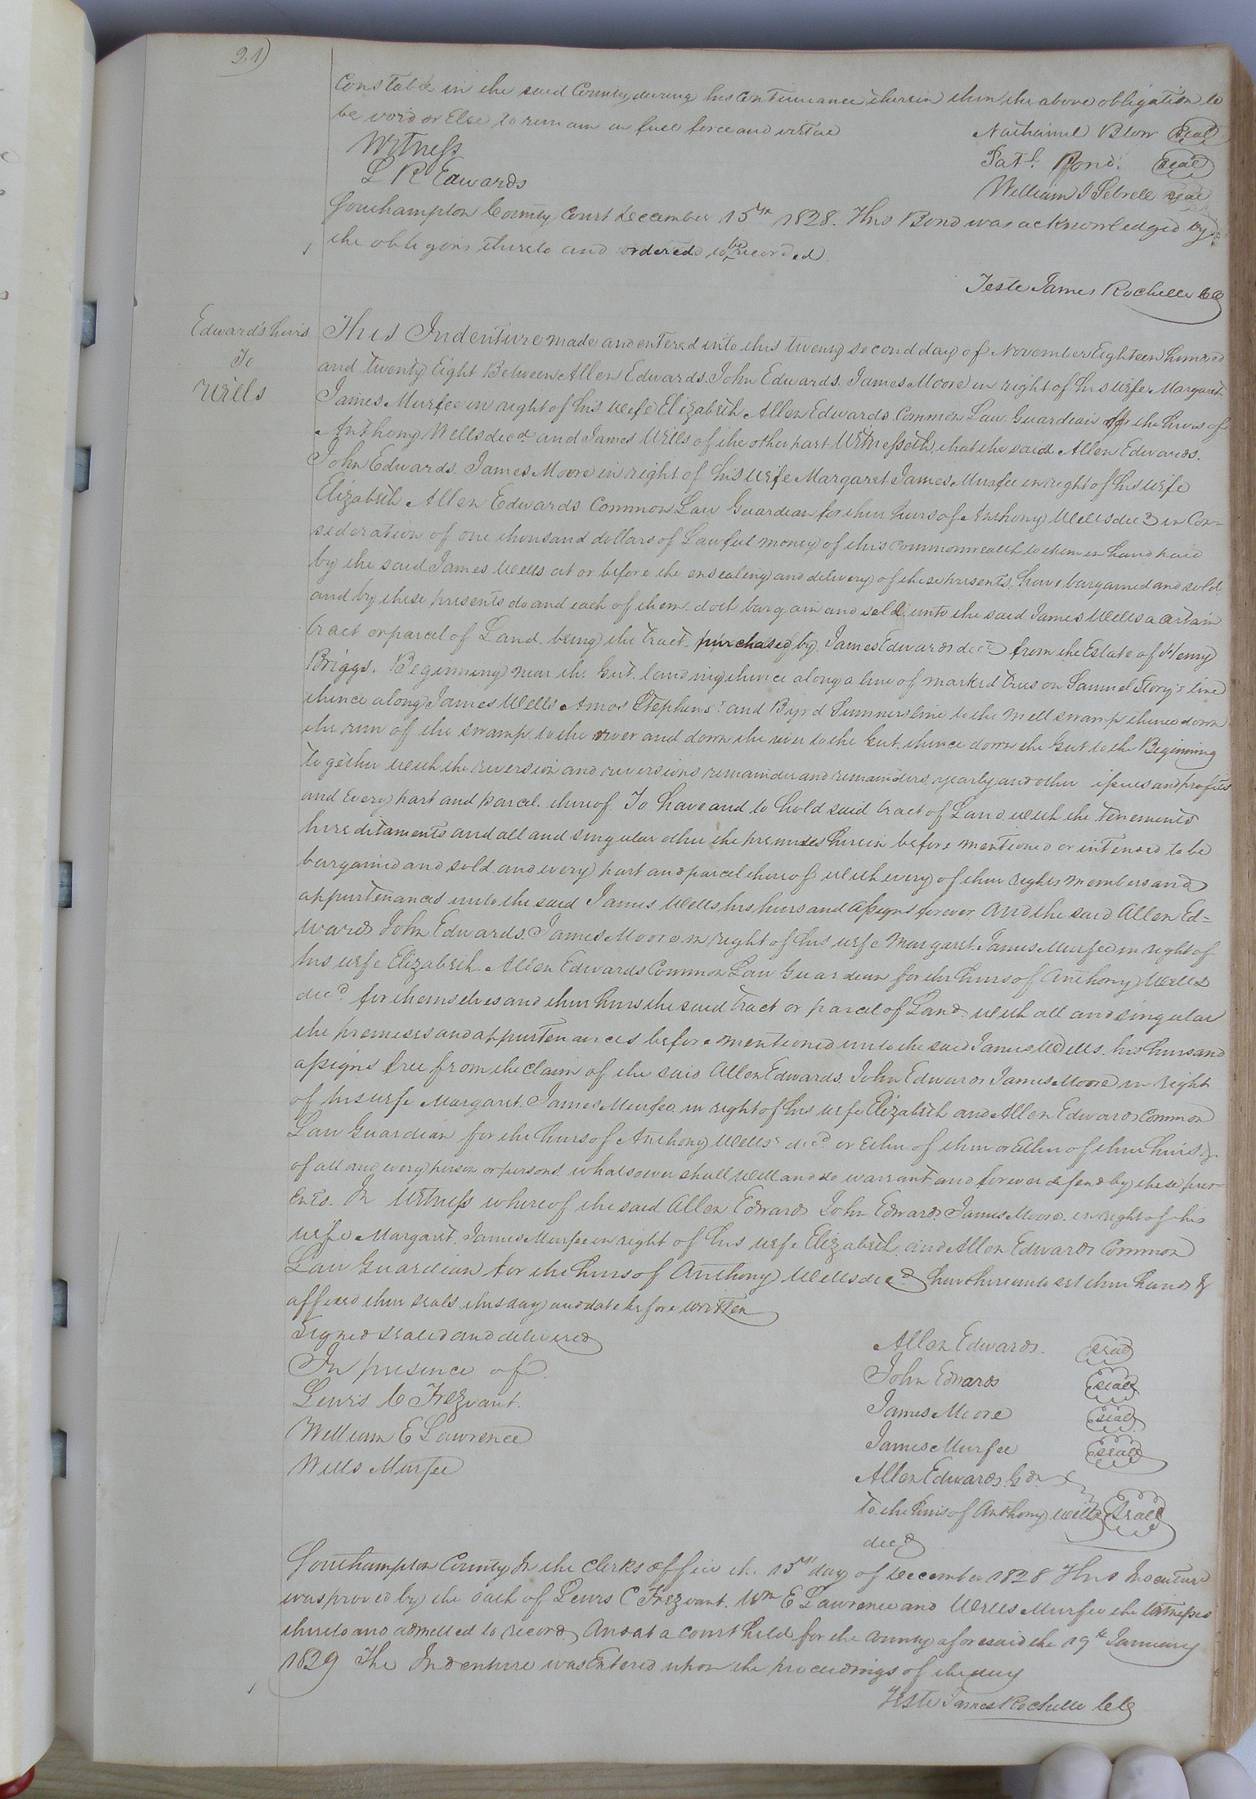 21)
Constable in the said County during his continuance therein then the above obligation to
be void or Else to remain in full force and virtue
Nathaniel Blow Seal
Witness
Pond Seal
L R Edwards
William J Sebrell Seal
Southampton County Court December 15th 1828. This Bond was acknowledged by
the obligors thereto and ordered to be recorded
Teste James Rochelle
Edwards heirs
To
Wills
This Indenture made and entered into this twenty second day of November Eighteen hundred
and twenty Eight Between Allen Edwards. John Edwards. James Moore in right of his wife Margaret
James Murfee in right of his wife Elizabeth Allen Edwards Common Law Guardian for the heirs of
Anthony Wells decd and James Wells of the other part Witnesseth that the said Allen Edwards.
John Edwards. James Moore in right of his wife Margaret James Murfee in right of his wife
Elizabeth Allen Edwards Common Law Guardian for their heirs of Anthony Wells decd in Con-
sideration of one thousand dollars of Lawful money of this commonwealth to them in hand paid
by the said James Wells at or before the ensealing and delivery of these presents, have bargained and sold
and by these presents do and each of them doth bargain and sell unto the said James Wells a certain
tract or parcel of Land being the tract purchased by James Edwards decd from the Estate of Henry
Briggs. Beginning near the Gut landing thence along a line of marked trees on Samuel Story's line
thence along James Wells Amos Stephens and Byrd Sumners line to the Mill swamp thence down
the run of the swamp to the river and down the river to the Gut, thence down the Gut to the Beginning
together with the reversion and reversions remainder and remainders yearly and other issues and profits
and Every part and parcel thereof To have and to hold said tract of Land with the tenements
hereditaments and all and singular other the premises herein before mentioned or intended to be
bargained and sold and every part and parcel thereof with every of their rights members and
appurtenances unto the said James Wells his heirs and assigns forever And the said Allen Ed=
wards John Edwards. James Moore in right of his wife Margaret. James Murfee in right of
his wife Elizabeth Allen Edwards Common Law Guardian for the heirs of Anthony Wells
decd for themselves and their heirs the said tract or parcel of Land with all and singular
the premises and appurtenances before mentioned unto the said James Wells. his heirs and
assigns free from the claim of the said Allen Edwards. John Edwards James Moore in right
of his wife Margaret. James Murfee in right of his wife Elizabeth and Allen Edwards Common
Law Guardian for the heirs of Anthony Wells decd or Either of them or Either of their heirs &
of all and every person or persons whatsoever shall will and do warrant and forever defend by these pres-
ents. In Witness whereof the said Allen Edwards John Edwards James Moore in right of his
wife Margaret. James Murfee in right of his wife Elizabeth. and Allen Edwards Common
Law Guardian for the heirs of Anthony Wells decd have hereunto set their hands &
affixed their seals this day and date before written
Signed sealed and delivered
In presence of
Lewis C Frezvant.
William E Lawrence
Wells Murfee
Allen Edwards. seal
John Edwards seal
James Moore seal
James Murfee seal
Allen Edwards Gdn
to the heirs of Anthony Wells seal
decd
Southampton County In the Clerks office the 15th day of December 1828 This Indenture
was proved by the oath of Lewis C Frezvant. Wm E Lawrence and Wells Murfee the witnesses
thereto and admitted to record And at a court held for the County aforesaid the 19th January
1829 The Indenture was Entered upon the proceedings of the day
Teste James Rochelle